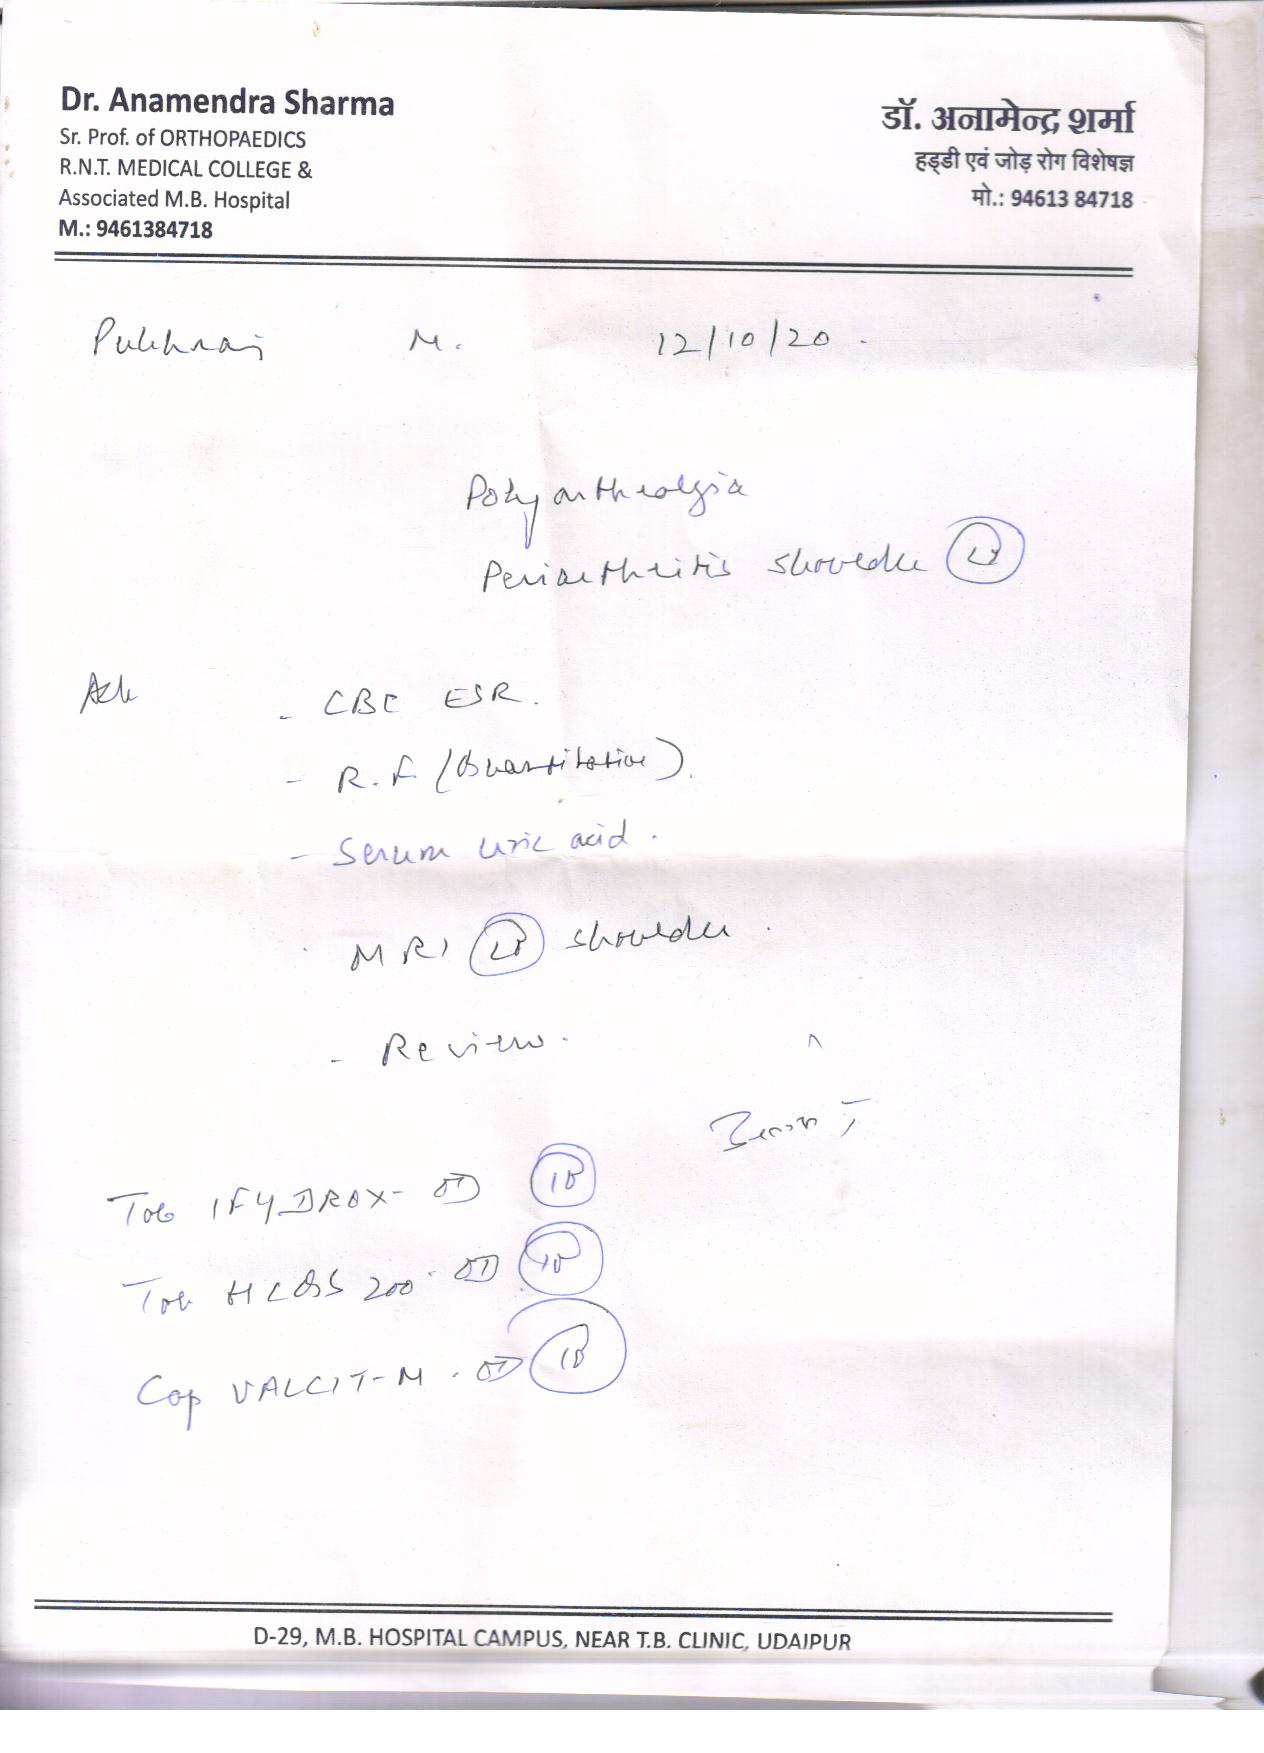 Dr. Anamendra Sharma
Sr. Prof. of ORTHOPAEDICS
R.N.T. MEDICAL COLLEGE &
Associated M.B. Hospital
M.: 9461384718
डॉ. अनामेन्द्र शर्मा
हड्डी एवं जोड़ रोग विशेषज्ञ
मो.: 94613 84718
Pukhraj M. 12/10/20.
Polyarthralgia
Periarthritis shoulder Lt
Adv - CBC ESR.
- R.F. (Quantitative).
- Serum uric acid.
MRI Lt shoulder.
- Review.
Tab IFYDROX- OD 10
Tab HCQS 200 - OD 10
Cap VALCIT-M. OD 10
D-29, M.B. HOSPITAL CAMPUS, NEAR T.B. CLINIC, UDAIPUR